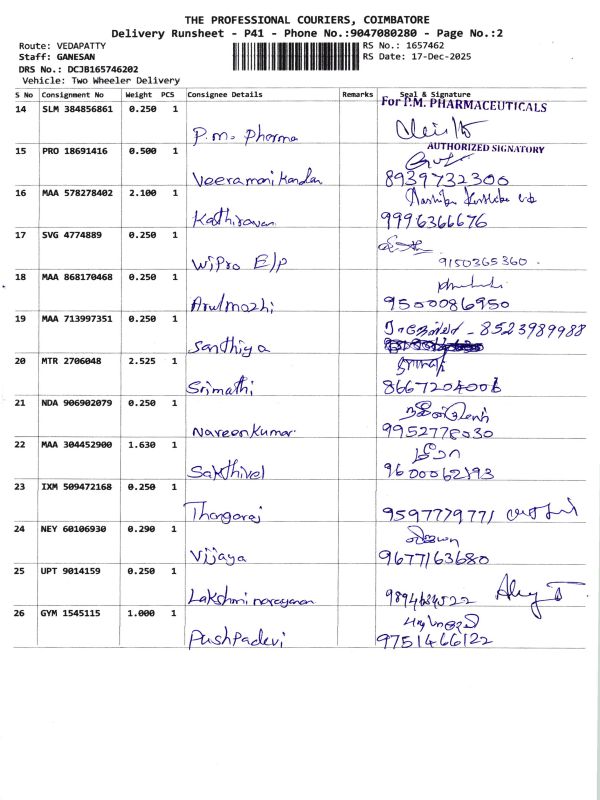 THE PROFESSIONAL COURIERS, COIMBATORE
Delivery Runsheet - P41 - Phone No.:9047080280 - Page No.:2
Route: VEDAPATTY
RS No.: 1657462
Staff: GANESAN
RS Date: 17-Dec-2025
DRS No.: DCJB165746202
Vehicle: Two Wheeler Delivery
S No Consignment No Weight PCS Consignee Details Remarks Seal & Signature
14 SLM 384856861 0.250 1
For P.M. PHARMACEUTICALS
P.m. Pharma
AUTHORIZED SIGNATORY
15 PRO 18691416 0.500 1
Veeramanikandan 8939732300
16 MAA 578278402 2.100 1
Kathiravan 9996366676
17 SVG 4774889 0.250 1
Wipro E/P 9150365360
18 MAA 868170468 0.250 1
Arulmozhi 9500086950
19 MAA 713997351 0.250 1
8523989988
Santhiya
20 MTR 2706048 2.525 1
Srimathi 8667204006
21 NDA 906902079 0.250 1
Nareenkumar 9952778030
22 MAA 304452900 1.630 1
Sakthivel 9600062193
23 IXM 509472168 0.250 1
Thangaraj 9597779771
24 NEY 60106930 0.290 1
Vijaya 9677163680
25 UPT 9014159 0.250 1
Lakshmi narayanan
26 GYM 1545115 1.000 1
Pushpadevi 9751466122